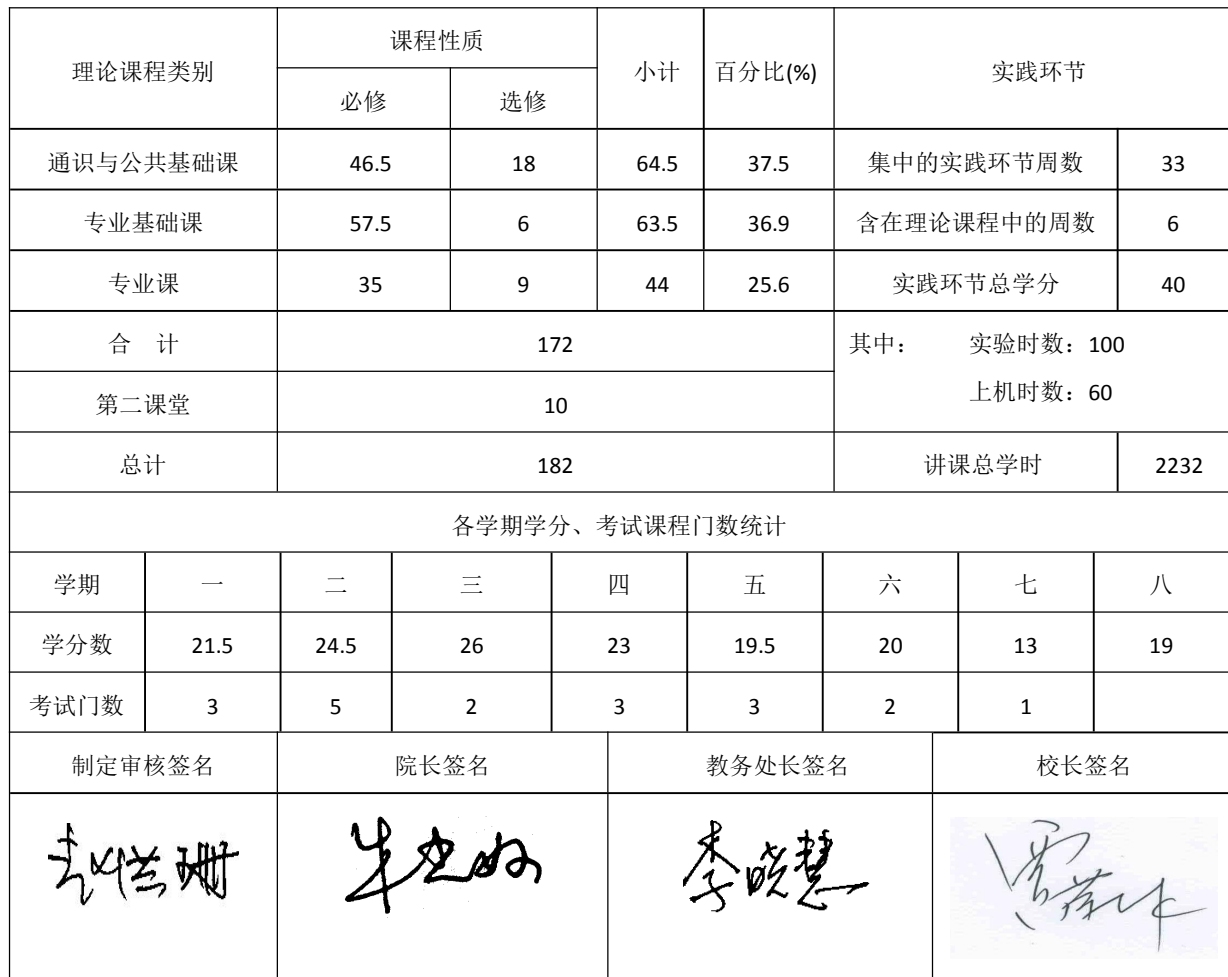 理论课程类别 课程性质 小计 百分比(%) 实践环节
必修 选修
通识与公共基础课 46.5 18 64.5 37.5 集中的实践环节周数 33
专业基础课 57.5 6 63.5 36.9 含在理论课程中的周数 6
专业课 35 9 44 25.6 实践环节总学分 40
合 计 172 其中: 实验时数:100
第二课堂 10 上机时数:60
总计 182 讲课总学时 2232
各学期学分、考试课程门数统计
学期 一 二 三 四 五 六 七 八
学分数 21.5 24.5 26 23 19.5 20 13 19
考试门数 3 5 2 3 3 2 1
制定审核签名 院长签名 教务处长签名 校长签名
李晓慧